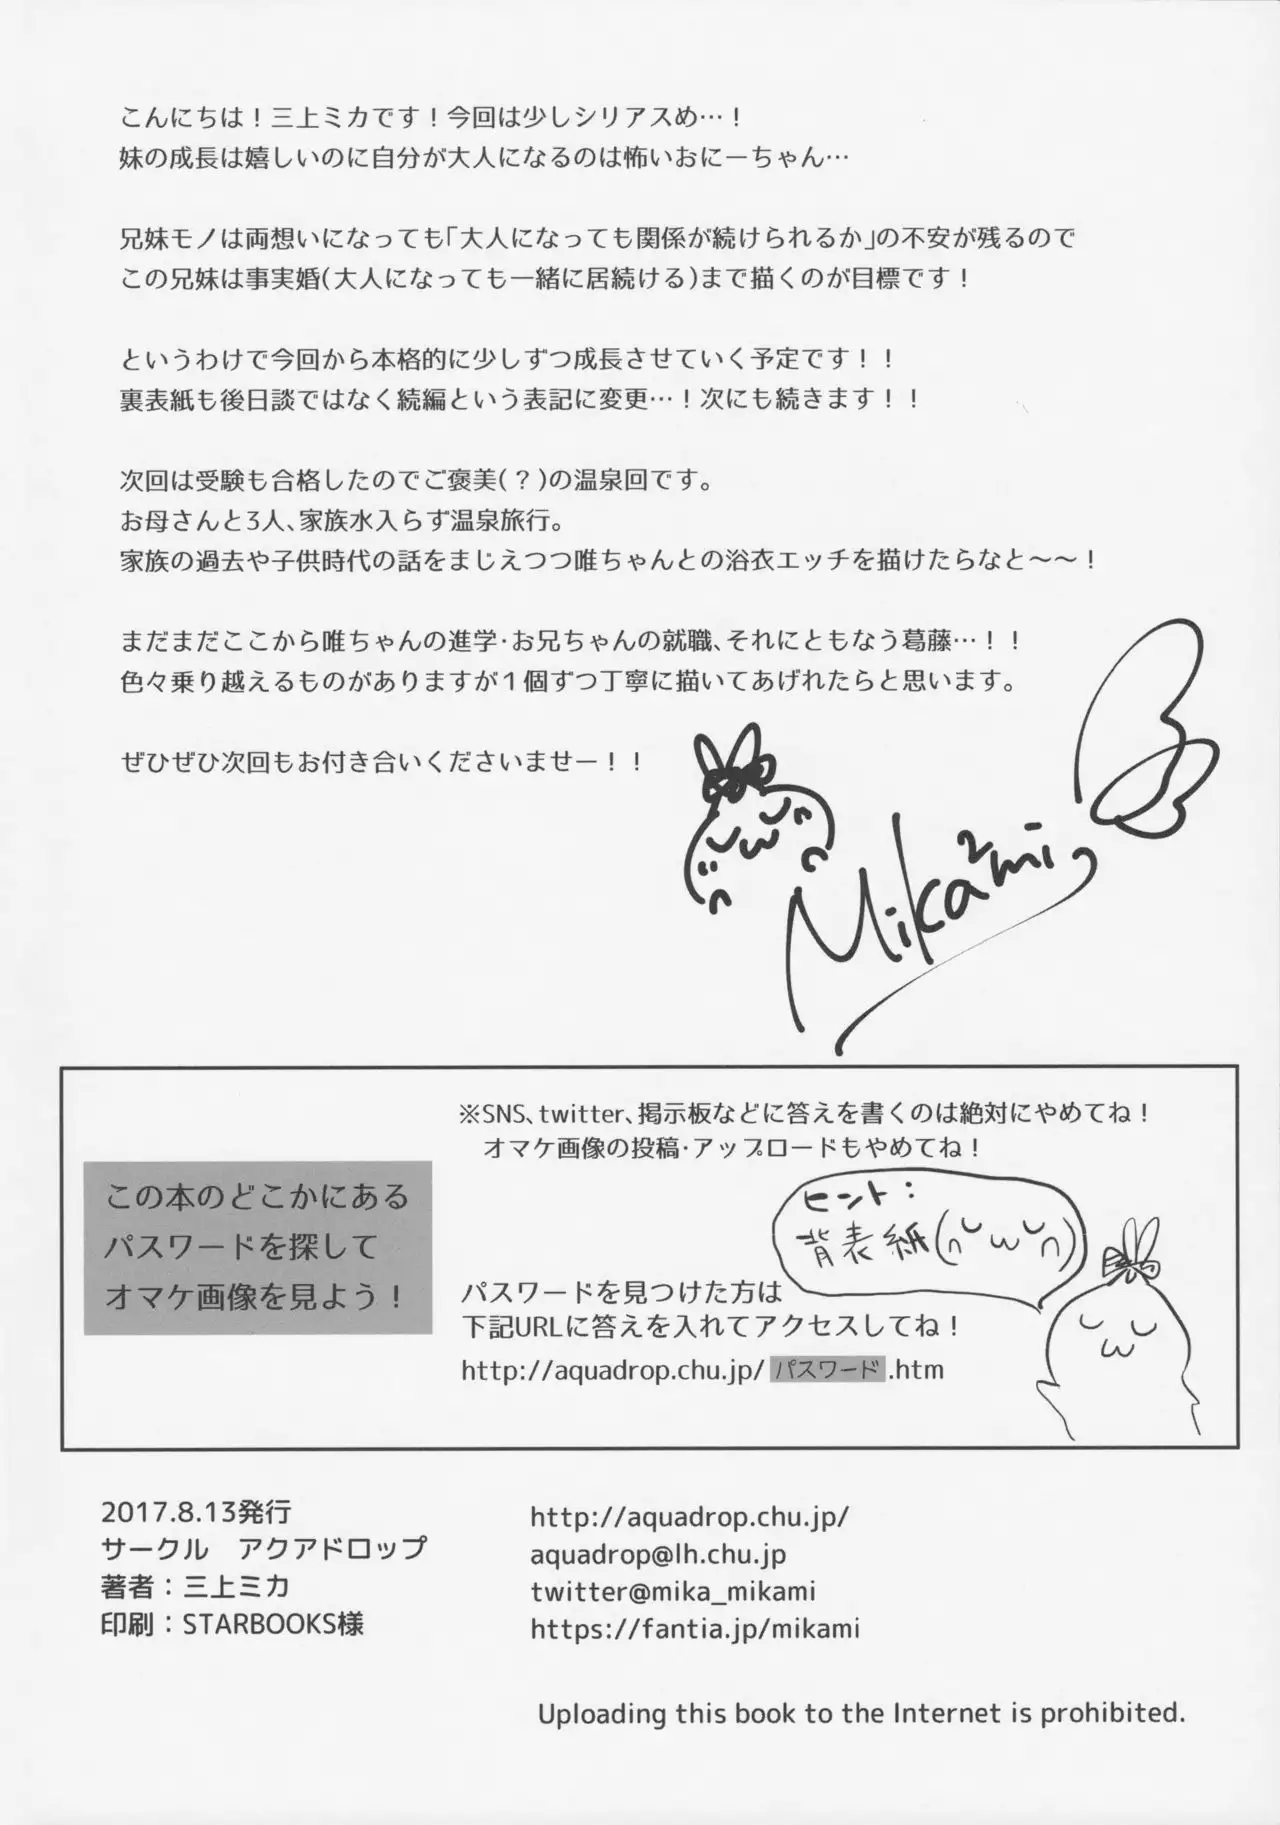 こんにちは！三上ミカです！今回は少しシリアスめ…！
妹の成長は嬉しいのに自分が大人になるのは怖いおにーちゃん…
兄妹モノは両想いになっても「大人になっても関係が続けられるか」の不安が残るので
この兄妹は事実婚(大人になっても一緒に居続ける)まで描くのが目標です！
というわけで今回から本格的に少しずつ成長させていく予定です！！
裏表紙も後日談ではなく続編という表記に変更…！次にも続きます！！
次回は受験も合格したのでご褒美(？)の温泉回です。
お母さんと3人、家族水入らず温泉旅行。
家族の過去や子供時代の話をまじえつつ唯ちゃんとの浴衣エッチを描けたらなと〜〜！
まだまだここから唯ちゃんの進学·お兄ちゃんの就職、それにともなう葛藤…！！
色々乗り越えるものがありますが１個ずつ丁寧に描いてあげれたらと思います。
ぜひぜひ次回もお付き合いくださいませー！！
Mika²mi
※SNS、twitter、掲示板などに答えを書くのは絶対にやめてね！
オマケ画像の投稿·アップロードもやめてね！
この本のどこかにある
パスワードを探して
オマケ画像を見よう！
ヒント：
背表紙
パスワードを見つけた方は
下記URLに答えを入れてアクセスしてね！
http://aquadrop.chu.jp/パスワード.htm
2017.8.13発行
サークル　アクアドロップ
著者：三上ミカ
印刷：STARBOOKS様
http://aquadrop.chu.jp/
aquadrop@lh.chu.jp
twitter@mika_mikami
https://fantia.jp/mikami
Uploading this book to the Internet is prohibited.